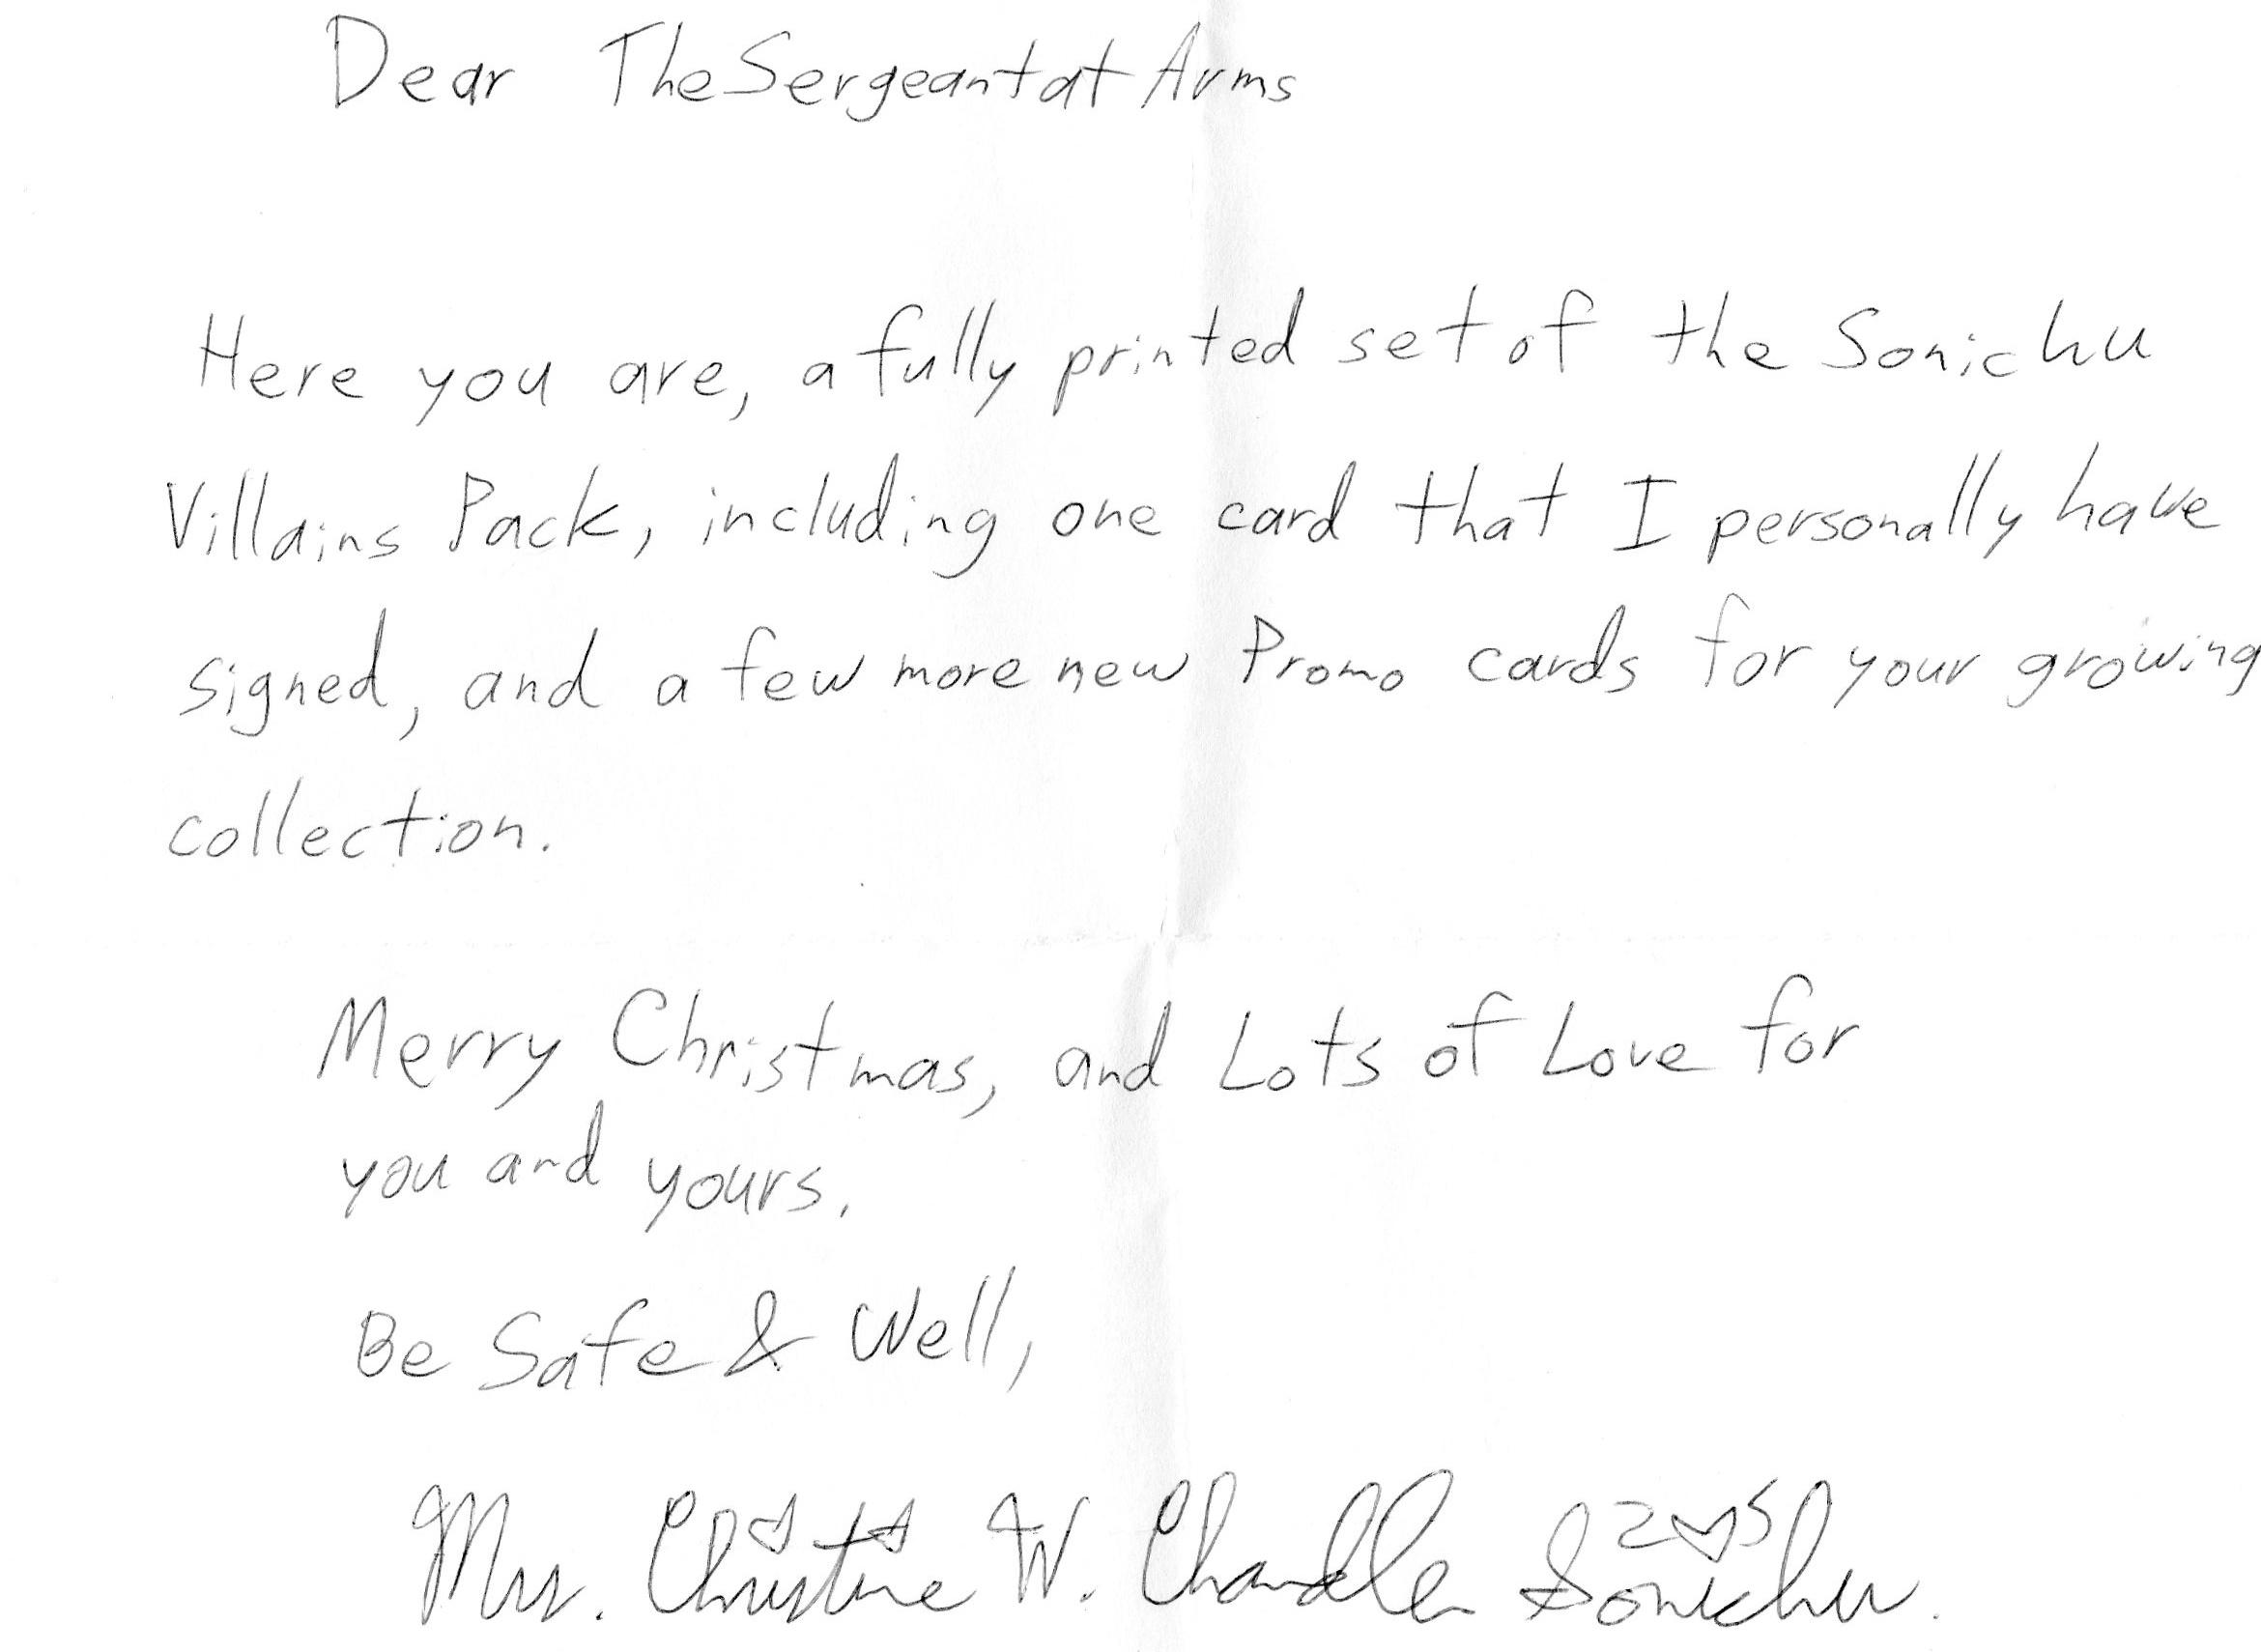 Dear TheSergeantatArms
Here you are, a fully printed set of the Sonichu
Villains Pack, including one card that I personally have
signed, and a few more new Promo cards for your growing
collection.
Merry Christmas, and Lots of Love for
you and yours.
Be Safe & Well,
Mrs. Christine W. Chandler Sonichu.